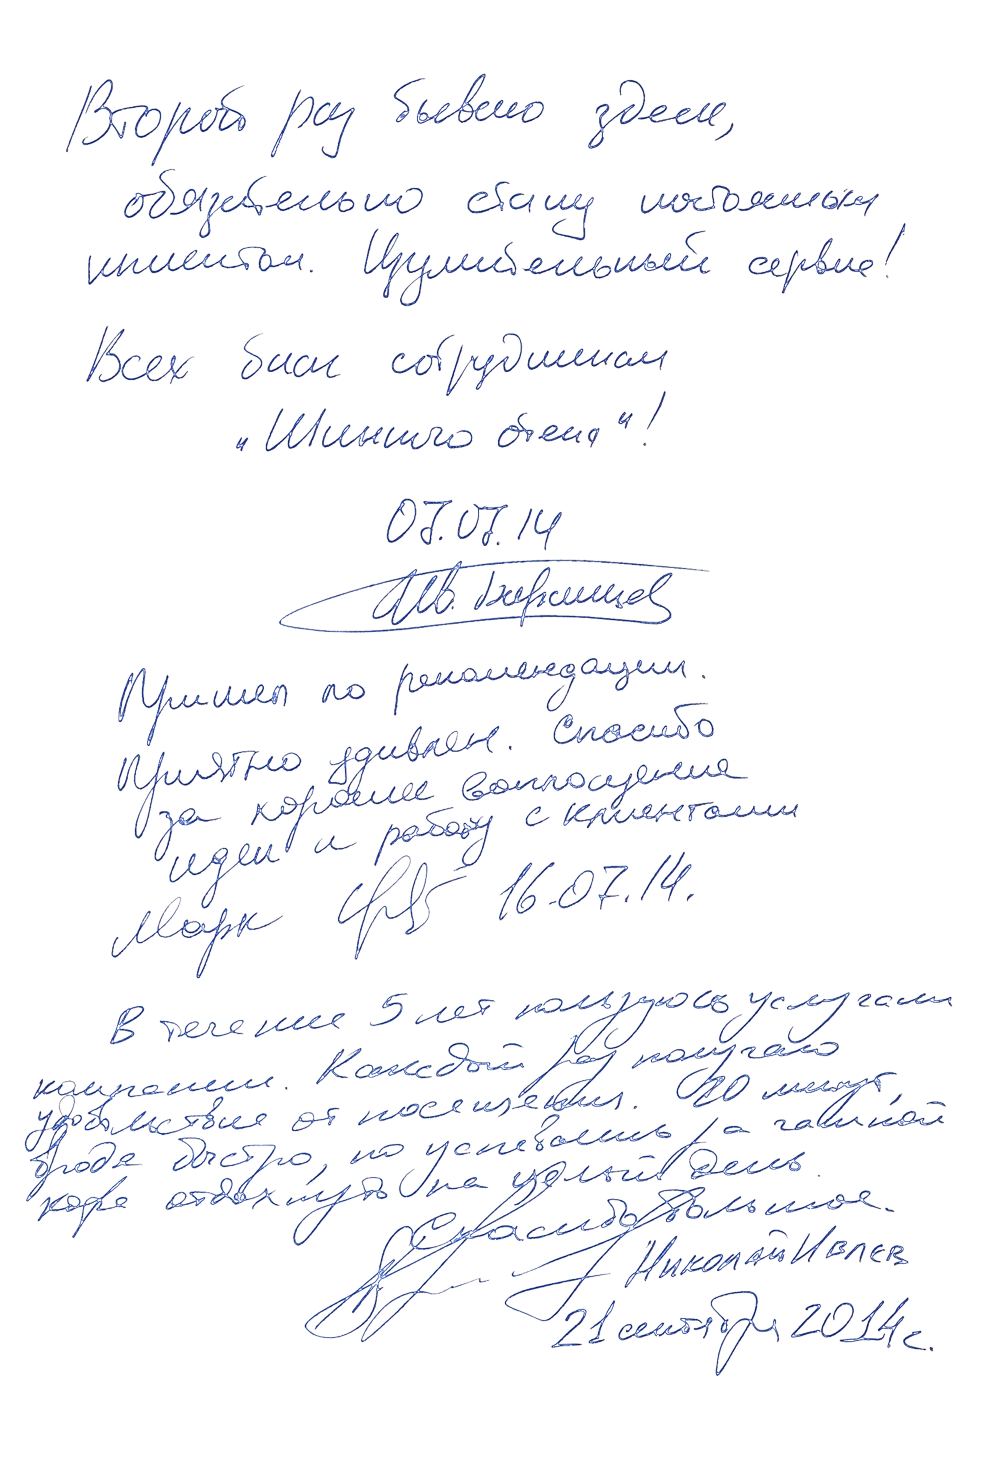 Второй раз бываю здесь,
обязательно стану постоянным
клиентом. Изумительный сервис!
Всех благ сотрудникам
„Шинного отеля“!
07.07.14
Пришел по рекомендации.
Приятно удивлен. Спасибо
за хорошее воплощение
идеи и работу с клиентами
Марк 16.07.14.
В течение 5 лет пользуюсь услугами
компании. Каждый раз получаю
удовольствие от посещения. 20 минут,
вроде быстро, но успеваешь за чашкой
кофе отдохнуть на целый день.
Спасибо большое.
Николай Ивлев
21 сентября 2014 г.